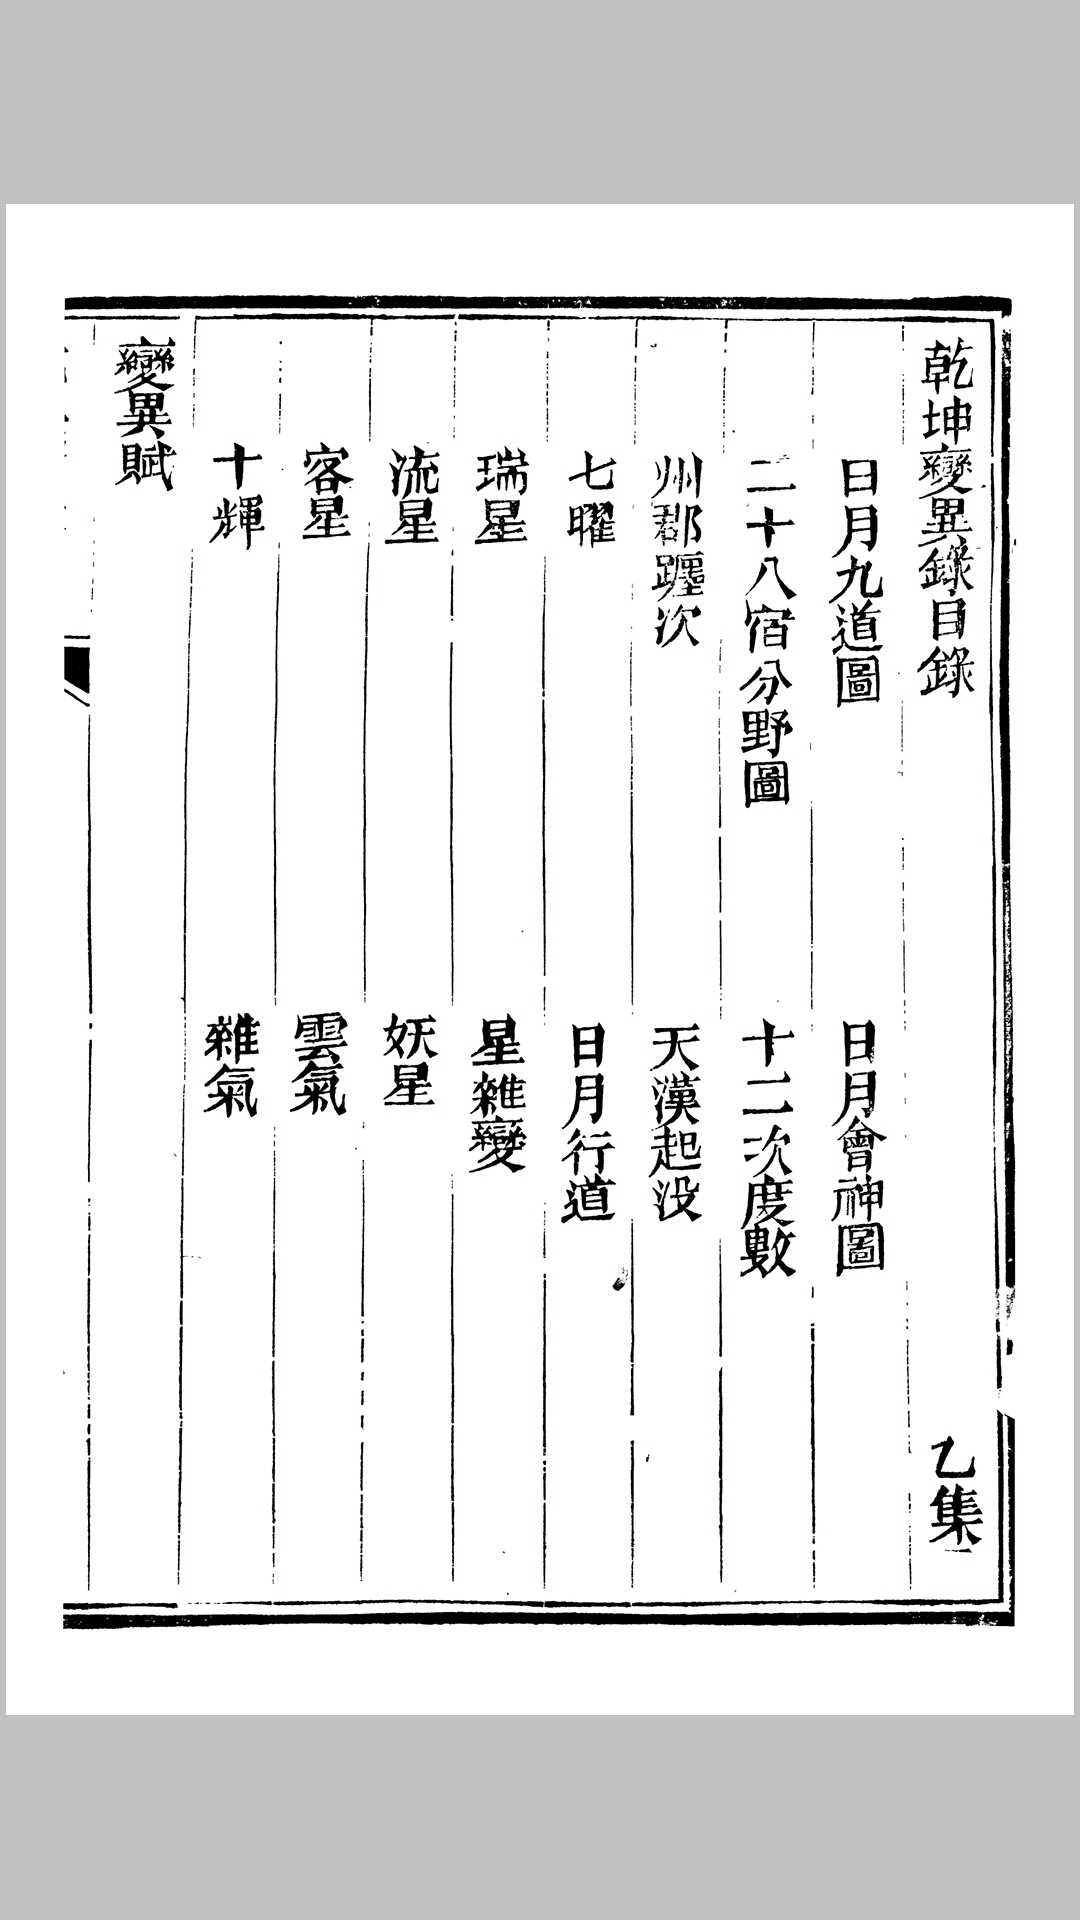 乾坤變異錄目錄　乙集
日月九道圖　日月會神圖
二十八宿分野圖　十二次度數
州郡躔次　天漢起没
七曜　日月行道
瑞星　星雜變
流星　妖星
客星　雲氣
十煇　雜氣
變異賦